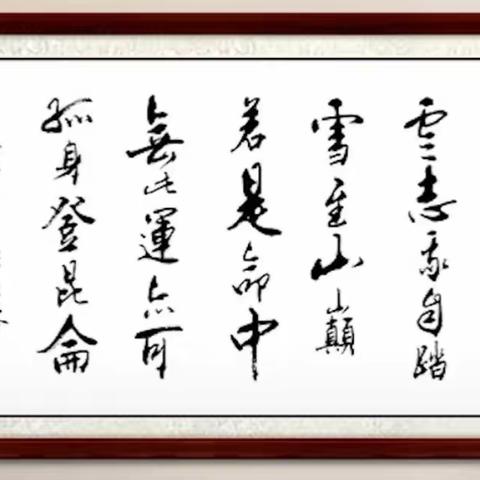 雲志我自踏
雪至山巔
若是命中
無此運亦可
孤身登昆侖